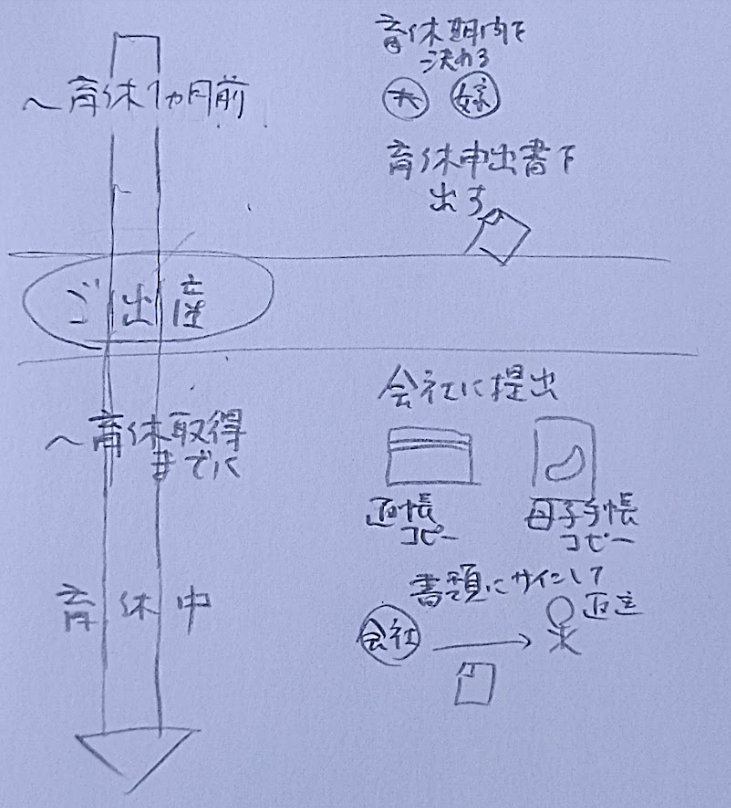 ~育休1ヵ月前
育休期間を
決める
夫 嫁
育休申出書を
出す
ご出産
~育休取得
までに
会社に提出
通帳
コピー
母子手帳
コピー
育休中
書類にサインして
会社